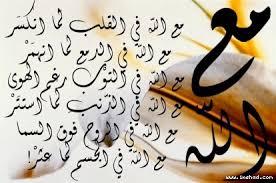 مع الله
مع اللهِ في القلب لما انكسر
مع اللهِ في الدمع لما انهمر
مع اللهِ في التوب رغم الهوى
مع اللهِ في الذنب لما استتر
مع اللهِ في الروح فوق السما
مع اللهِ في الجسم لما عثر!